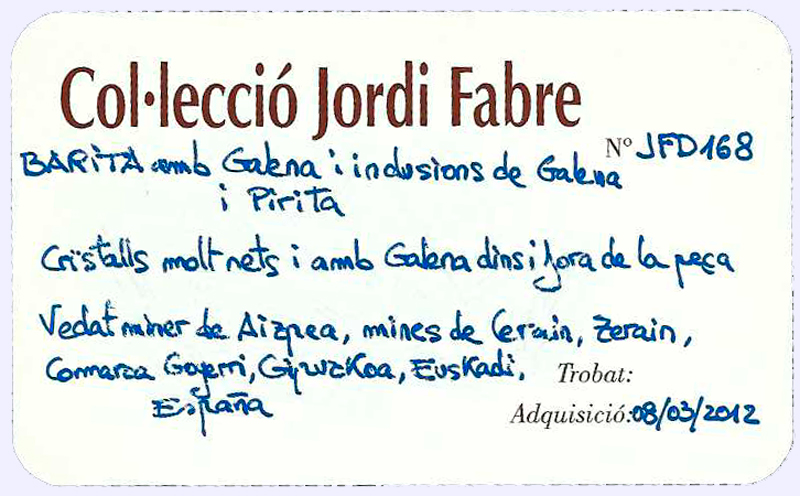 Col·lecció Jordi Fabre
Nº JFD168
BARITA amb Galena i inclusions de Galena
i Pirita
Cristalls molt nets i amb Galena dins i fora de la peça
Vedat miner de Aizpea, mines de Cerain, Zerain,
Comarca Goyerri, Gipuzkoa, Euskadi,
España
Trobat:
Adquisició: 08/03/2012